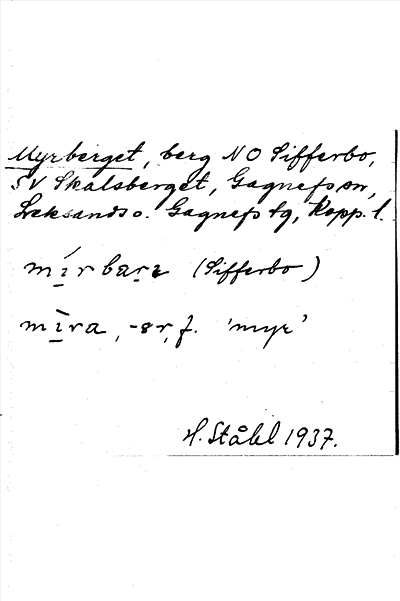 Myrberget, berg NO Sifferbo,
SV Skålsberget, Gagnefs sn,
Leksands o. Gagnefs tg, Kopp. l.
mírbarı (Sifferbo)
mìra, -ər, f. 'myr'
H. Ståhl 1937.